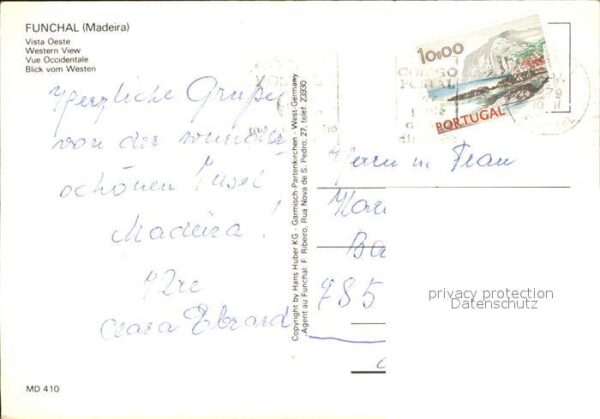 FUNCHAL (Madeira)
Vista Oeste
Western View
Vue Occidentale
Blick vom Westen
Herzliche Grüße
von der wunder
schönen Insel
Madeira!
Clara Ebrard
MD 410
Copyright by Hans Huber KG - Garmisch-Partenkirchen - West-Germany
Agent au Funchal: F. Ribeiro, Rua Nova de S. Pedro, 27, telef. 23930
10$00
PORTUGAL
CODIGO
POSTAL
79
Herrn u. Frau
Ba
785
privacy protection
Datenschutz